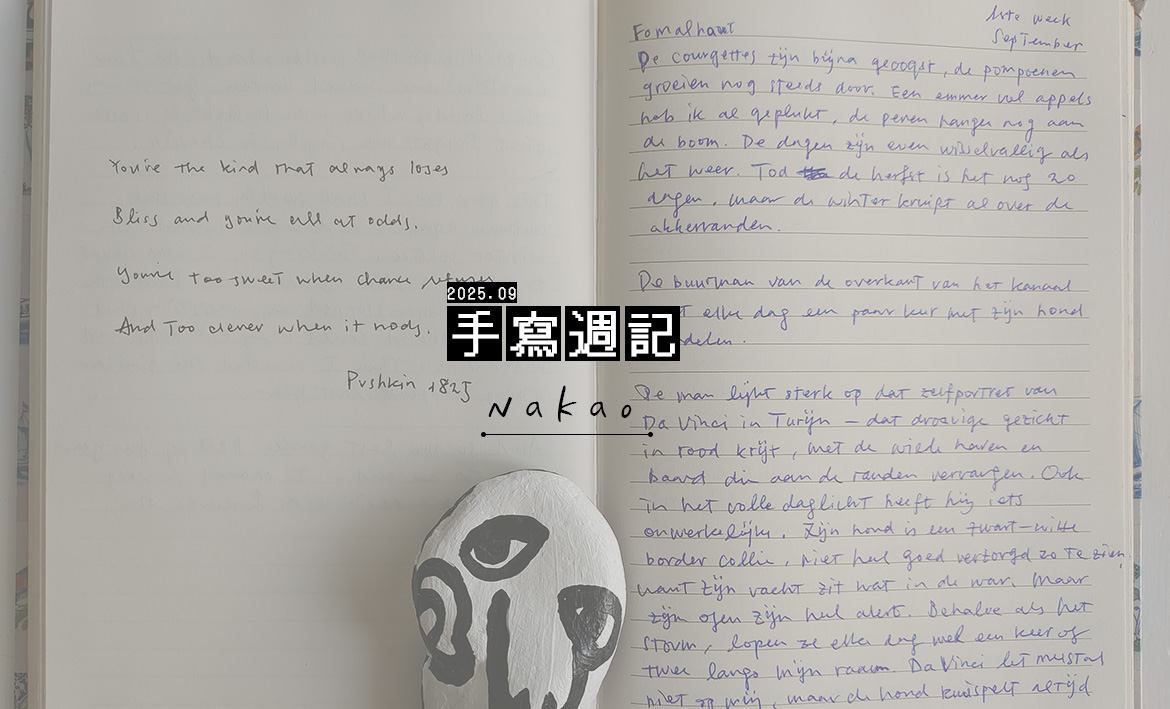 You're the kind that always loses
Bliss and you're all at odds.
You're too sweet when chance
And too clever when it nods.
Pushkin 1825
2025.09
手寫週記
Nakao
1ste week
September
Fomalhaut
De courgettes zijn bijna geoogst, de pompoenen
groeien nog steeds door. Een emmer vol appels
heb ik al geplukt, de peren hangen nog aan
de boom. De dagen zijn even wisselvallig als
het weer. Tod de herfst is het nog 20
dagen, maar de winter kruipt al over de
akkerranden.
De buurman van de overkant van het kanaal
elke dag een paar keer met zijn hond
De man lijkt sterk op dat zelfportret van
Da Vinci in Turijn – dat droevige gezicht
in rood krijt, met de wilde haren en
baard die aan de randen vervangen. Ook
in het volle daglicht heeft hij iets
onwerkelijks. Zijn hond is een zwart-witte
border collie, niet heel goed verzorgd zo te zien,
want zijn vacht zit wat in de war. Maar
zijn ogen zijn heel alert. Behalve als het
stormt, lopen ze elke dag wel een keer of
twee langs mijn raam. Da Vinci let meestal
niet op mij, maar de hond kwispelt altijd